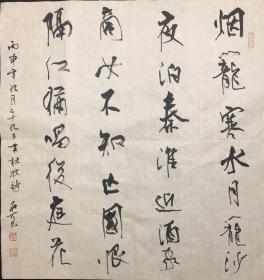 烟籠寒水月籠沙
夜泊秦淮近酒家
商女不知亡國恨
隔江猶唱後庭花
丙申年九月二十九日書杜牧詩